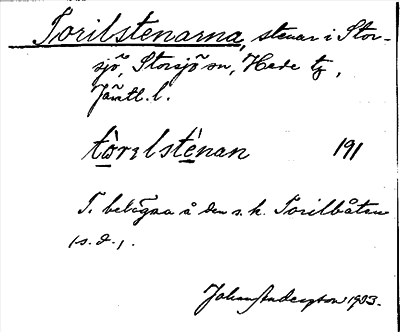 Torilstenarna, stenar i Stor-
sjö, Storsjö sn, Hede tg,
Jämtl. l.
tòrɩlsténan 191
T. belägna å den s.k. Torilbåten
(s.d.).
Johan Anderson 1903.